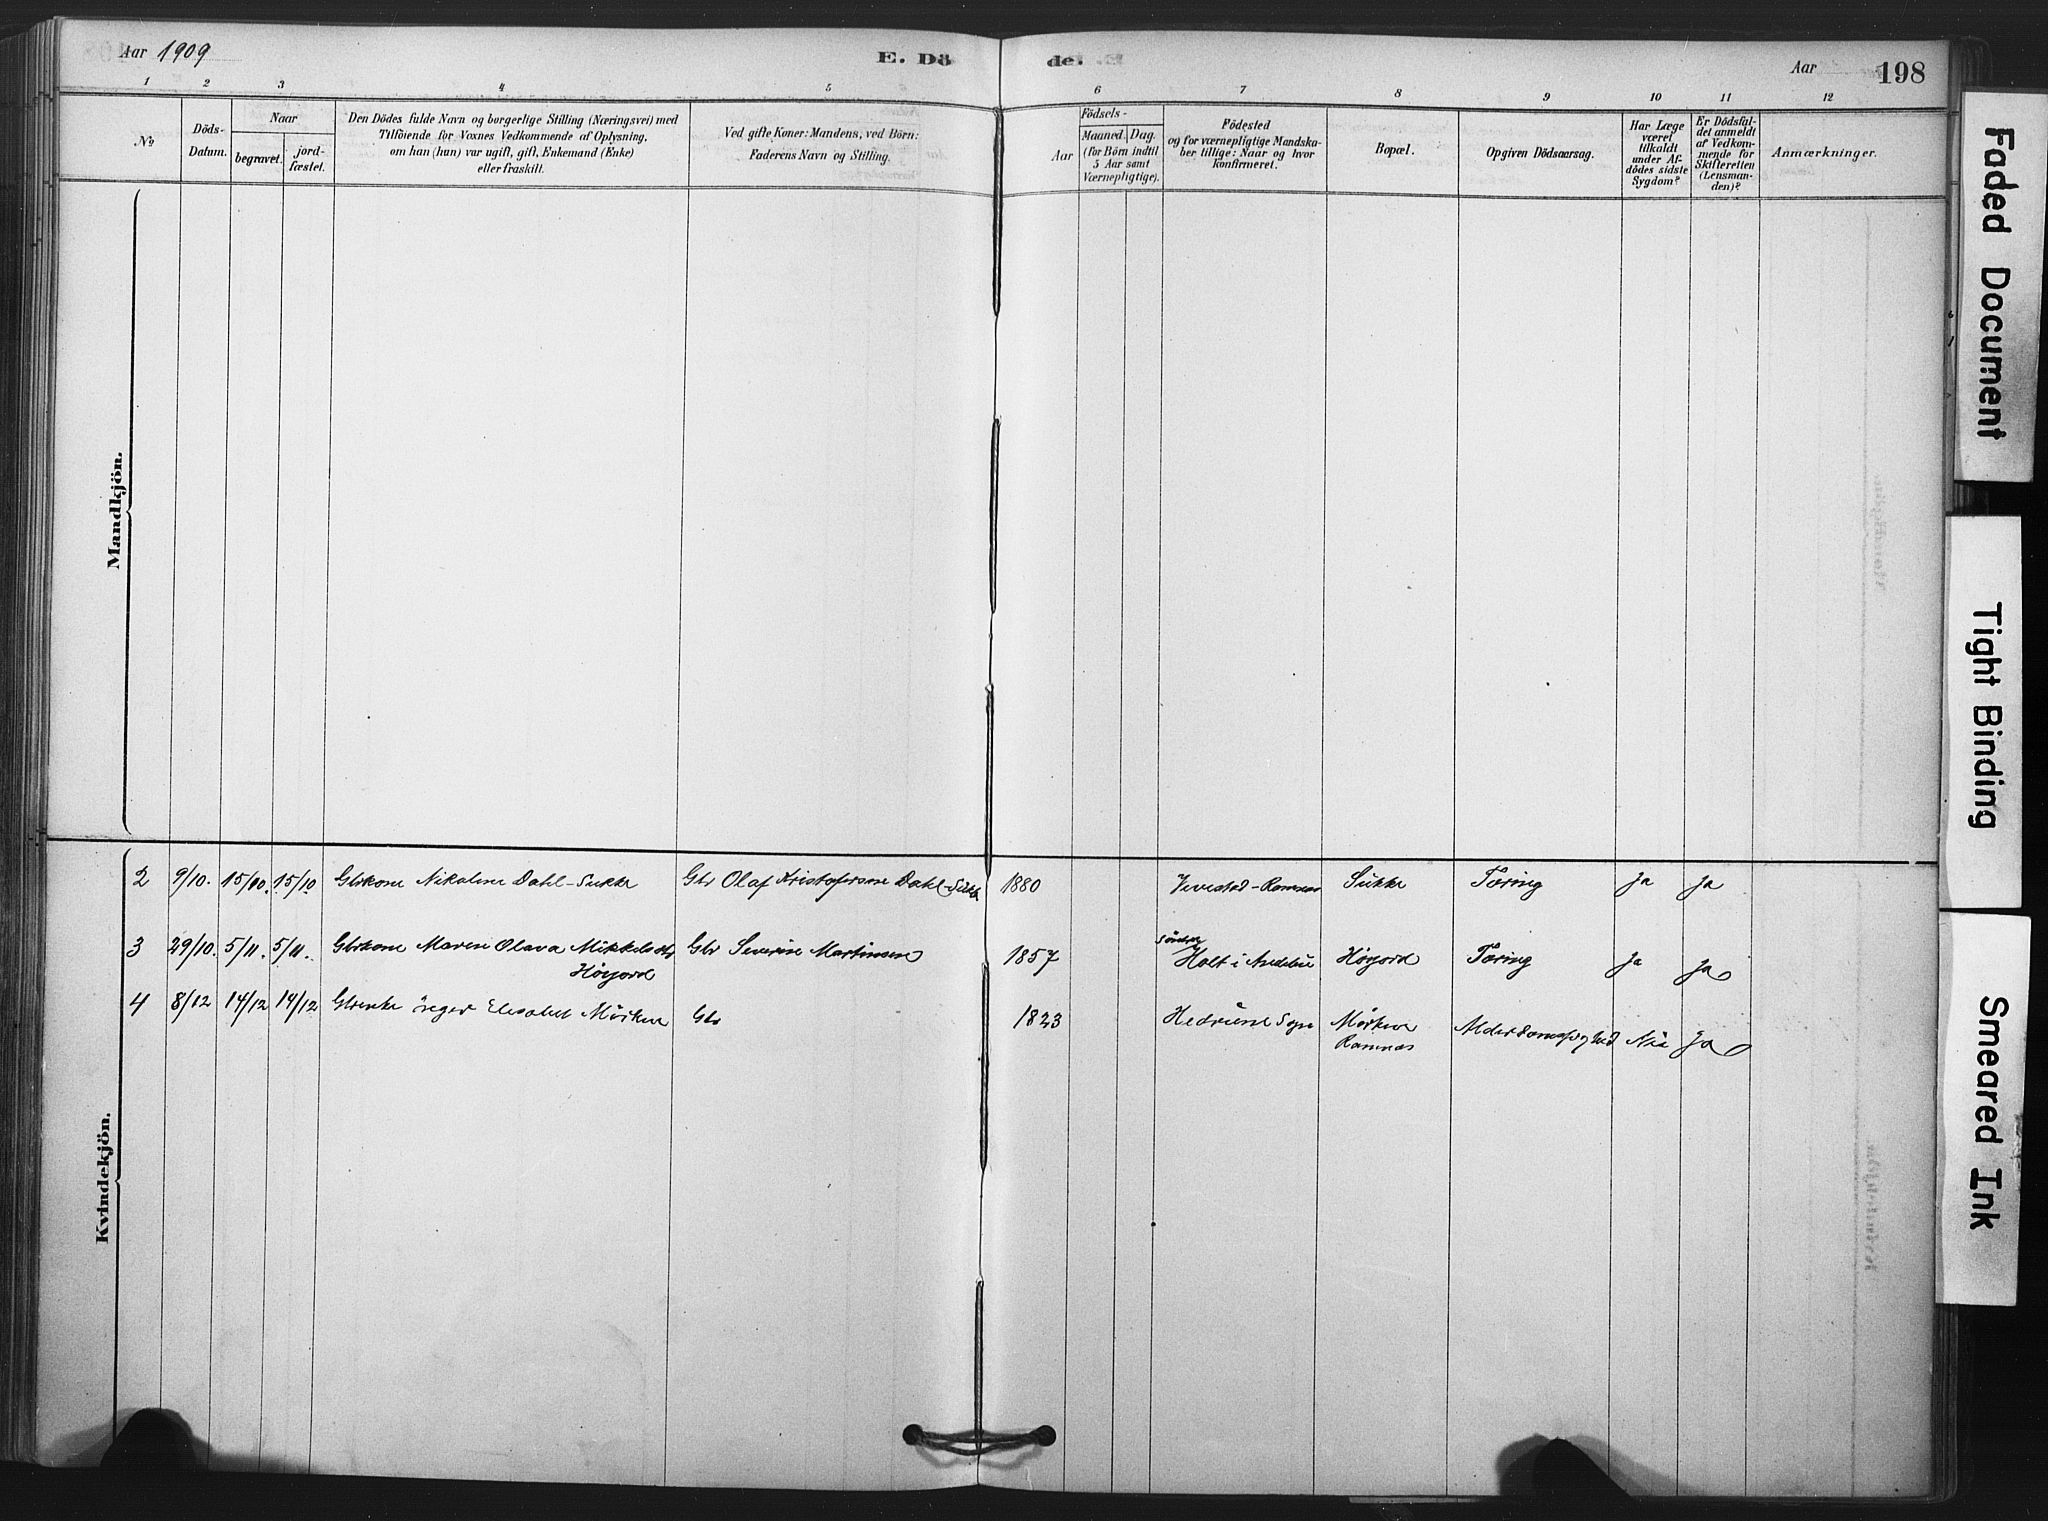 Aar 1909
E. Dö
de.
Aar
198
1 2 3 4 5 6 7 8 9 10 11 12
No
Döds-
Datum.
Naar
begravet.
jord-
fæstet.
Den Dödes fulde Navn og borgerlige Stilling (Næringsvei) med
Tilföiende for Voxnes Vedkommende af Oplysning,
om han (hun) var ugift, gift, Enkemand (Enke)
eller fraskilt.
Ved gifte Koner: Mandens, ved Börn:
Faderens Navn og Stilling.
Födsels-
Aar
Maaned.
Dag.
(for Börn indtil
5 Aar samt
Værnepligtige).
Födested
og for værnepligtige Mandska-
ber tillige: Naar og hvor
konfirmeret.
Bopæl.
Opgiven Dödsaarsag.
Har Læge
været
tilkaldt
under Af-
dödes sidste
Sygdom?
Er Dödsfal-
det anmeldt
af Vedkom-
mende for
Skifteretten
(Lensman-
den)?
Anmærkninger.
Mandkjön.
Kvindekjön.
2 9/10. 15/10. 15/10 Gbrkone Nikoline Dahl-Sukke Gbr Olaf Kristofersen Dahl-Sukke 1880 -Ramnes Sukke Tæring Ja Ja
3 29/10. 5/11. 5/11. Gbrkone Maren Olava Mikkelsdtr Gbr Severin Martinsen 1857 Søndre
Høyjord
Holt i Andebu Høyjord Tæring Ja Ja
4 8/12 14/12 14/12 Gbrenke Inger Elisabet Mörken Gbr 1823 Hedrum Sogn Mörken Alderdomssvaghed Nei Ja
Ramnes
Faded Document
Tight Binding
Smeared Ink